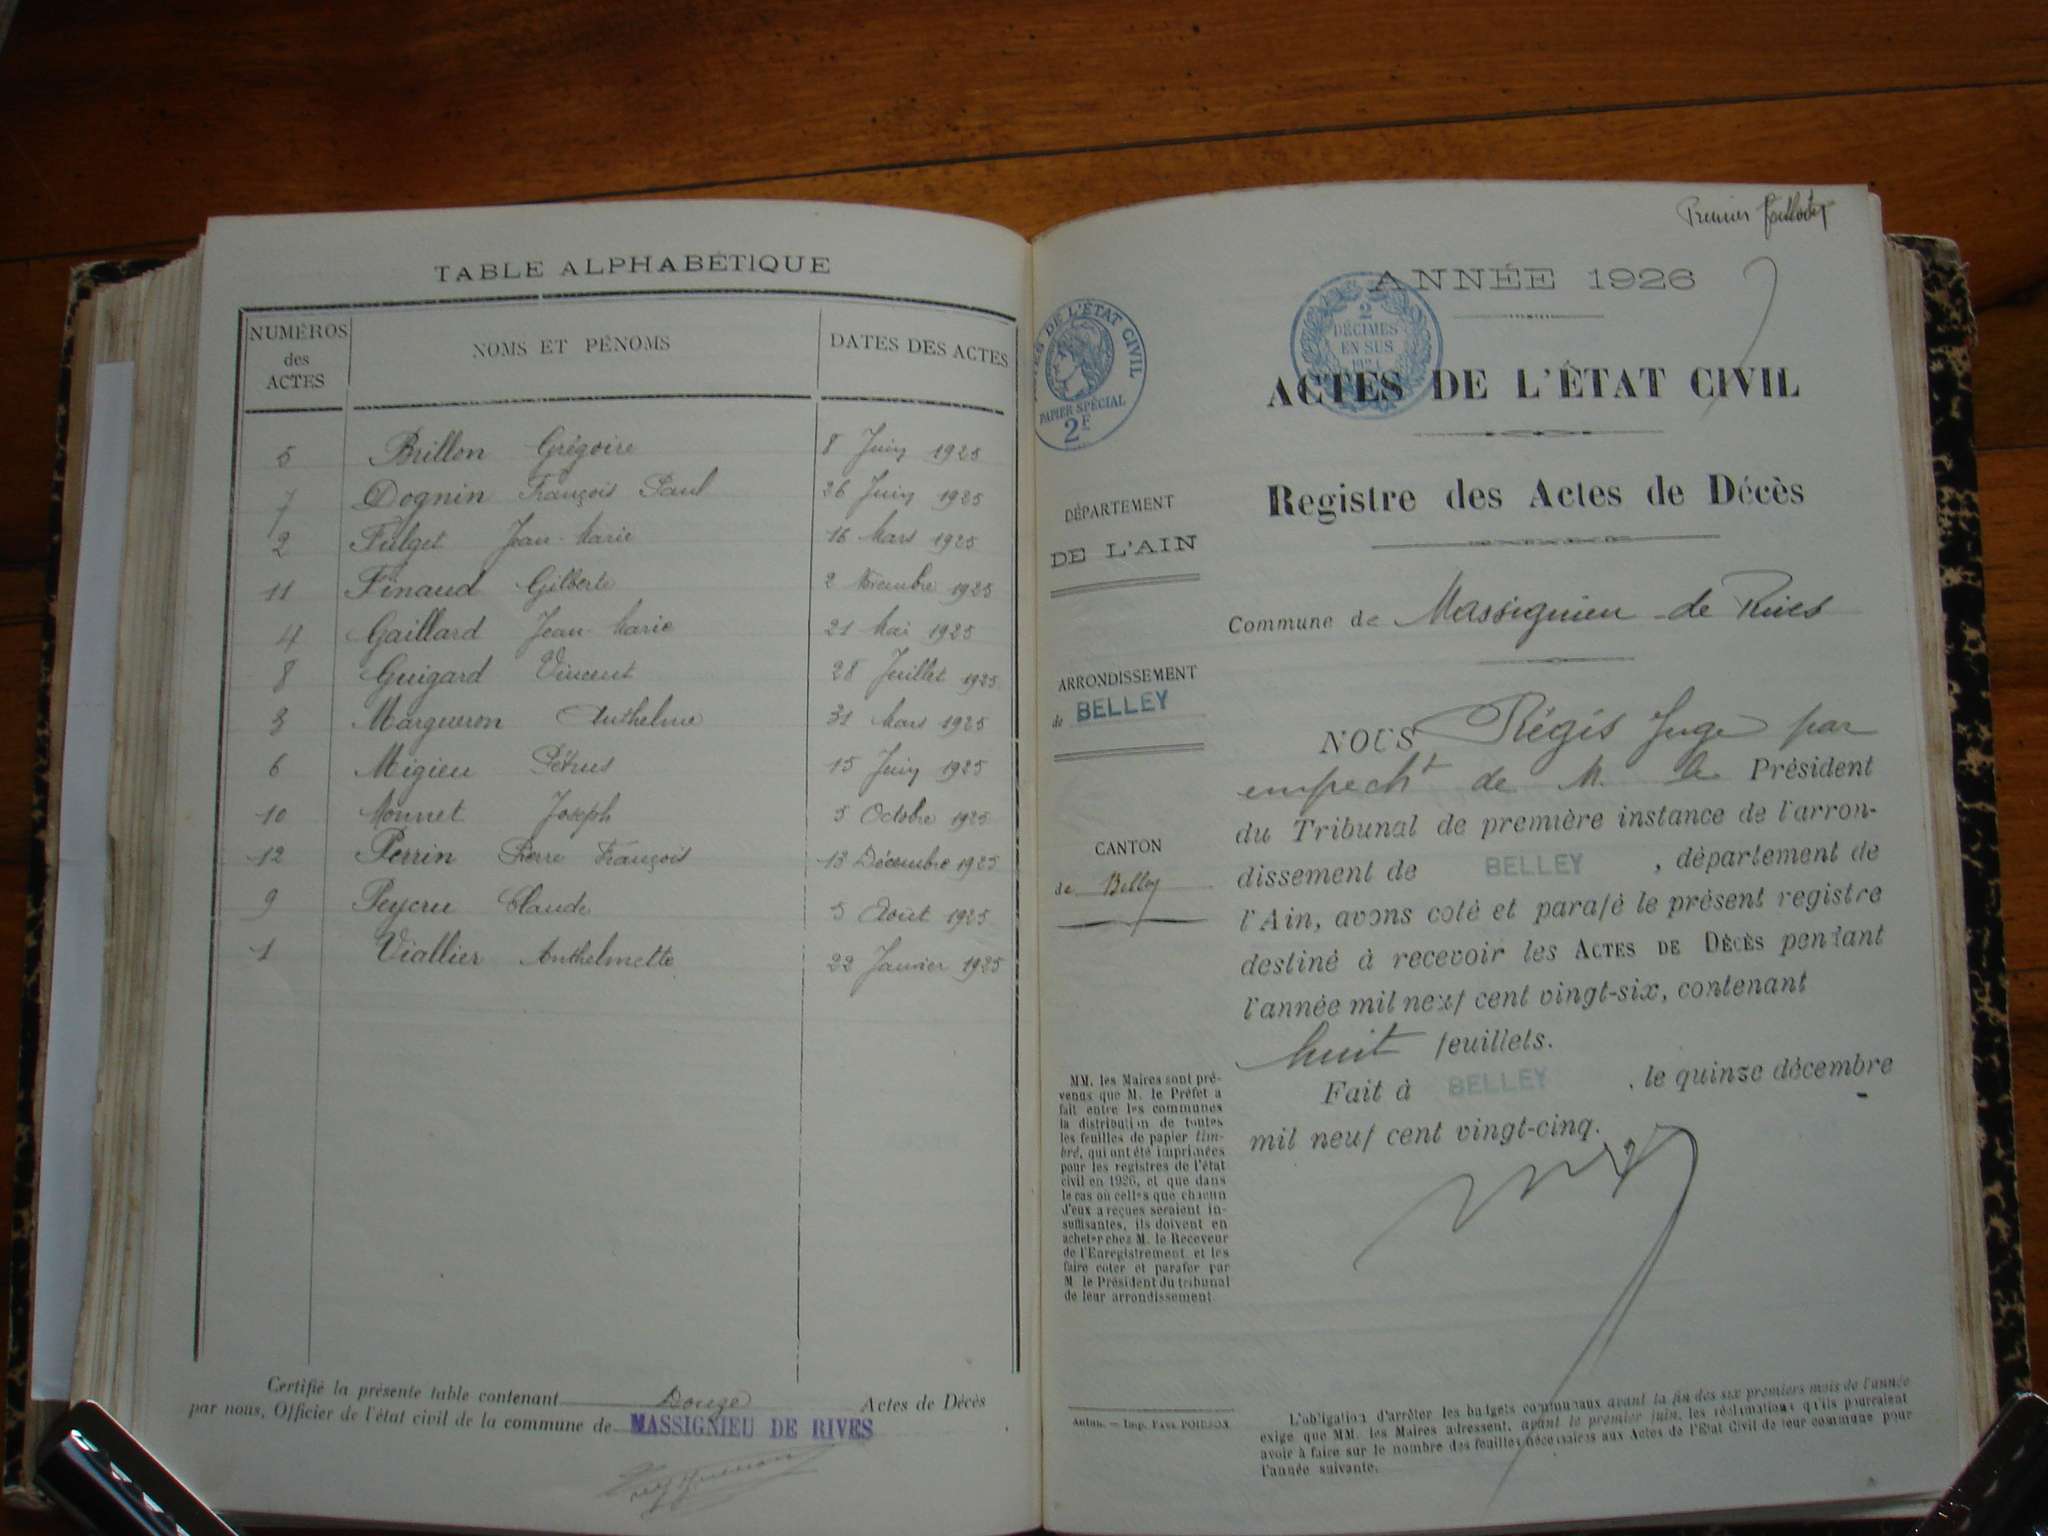 TABLE ALPHABÉTIQUE
NUMÉROS des ACTES
NOMS ET PÉNOMS
DATES DES ACTES
5 Brillon Grégoire 8 Juin 1925
7 Dognin François Paul 26 Juin 1925
2 Fulget Jean-Marie 16 Mars 1925
11 Finaud Gilberte 2 Novembre 1925
4 Gaillard Jean-Marie 21 Mai 1925
8 Guigard Vincent 28 Juillet 1925
3 Margueron Anthelme 31 Mars 1925
6 Migieu Pétrus 15 Juin 1925
10 Monnet Joseph 5 Octobre 1925
12 Perrin Pierre François 13 Décembre 1925
9 Peycru Claude 5 Août 1925
1 Viallier Anthelmette 22 Janvier 1925
Certifié la présente table contenant Douze Actes de Décès
par nous, Officier de l'état civil de la commune de MASSIGNIEU DE RIVES
Premier
ANNÉE 1926
DE L'ÉTAT CIVIL
PAPIER SPÉCIAL
2F
2
DÉCIMES
EN SUS
ACTES DE L'ÉTAT CIVIL
Registre des Actes de Décès
Commune de Massignieu de Rives
DÉPARTEMENT
DE L'AIN
ARRONDISSEMENT
de BELLEY
CANTON
de Belley
MM. les Maires sont pré-
venus que M. le Préfet a
fait entre les communes
la distribution de toutes
les feuilles de papier tim-
bré, qui ont été imprimées
pour les registres de l'état
civil en 1926, et que dans
le cas où celles que chacun
d'eux a reçues seraient in-
suffisantes, ils doivent en
acheter chez M. le Receveur
de l'Enregistrement et les
faire coter et parafer par
M. le Président du tribunal
de leur arrondissement
NOUS Régis Juge par
empecht de M. le Président
du Tribunal de première instance de l'arron-
dissement de BELLEY, département de
l'Ain, avons coté et parafé le présent registre
destiné à recevoir les ACTES DE DÉCÈS pendant
l'année mil neuf cent vingt-six, contenant
huit feuillets.
Fait à BELLEY, le quinze décembre
mil neuf cent vingt-cinq.
L'obligation d'arrêter les budgets communaux avant la fin des six premiers mois de l'année
exige que MM. les Maires adressent, avant le premier juin, les réclamations qu'ils pourraient
avoir à faire sur le nombre des feuilles nécessaires aux Actes de l'État Civil de leur commune pour
l'année suivante.